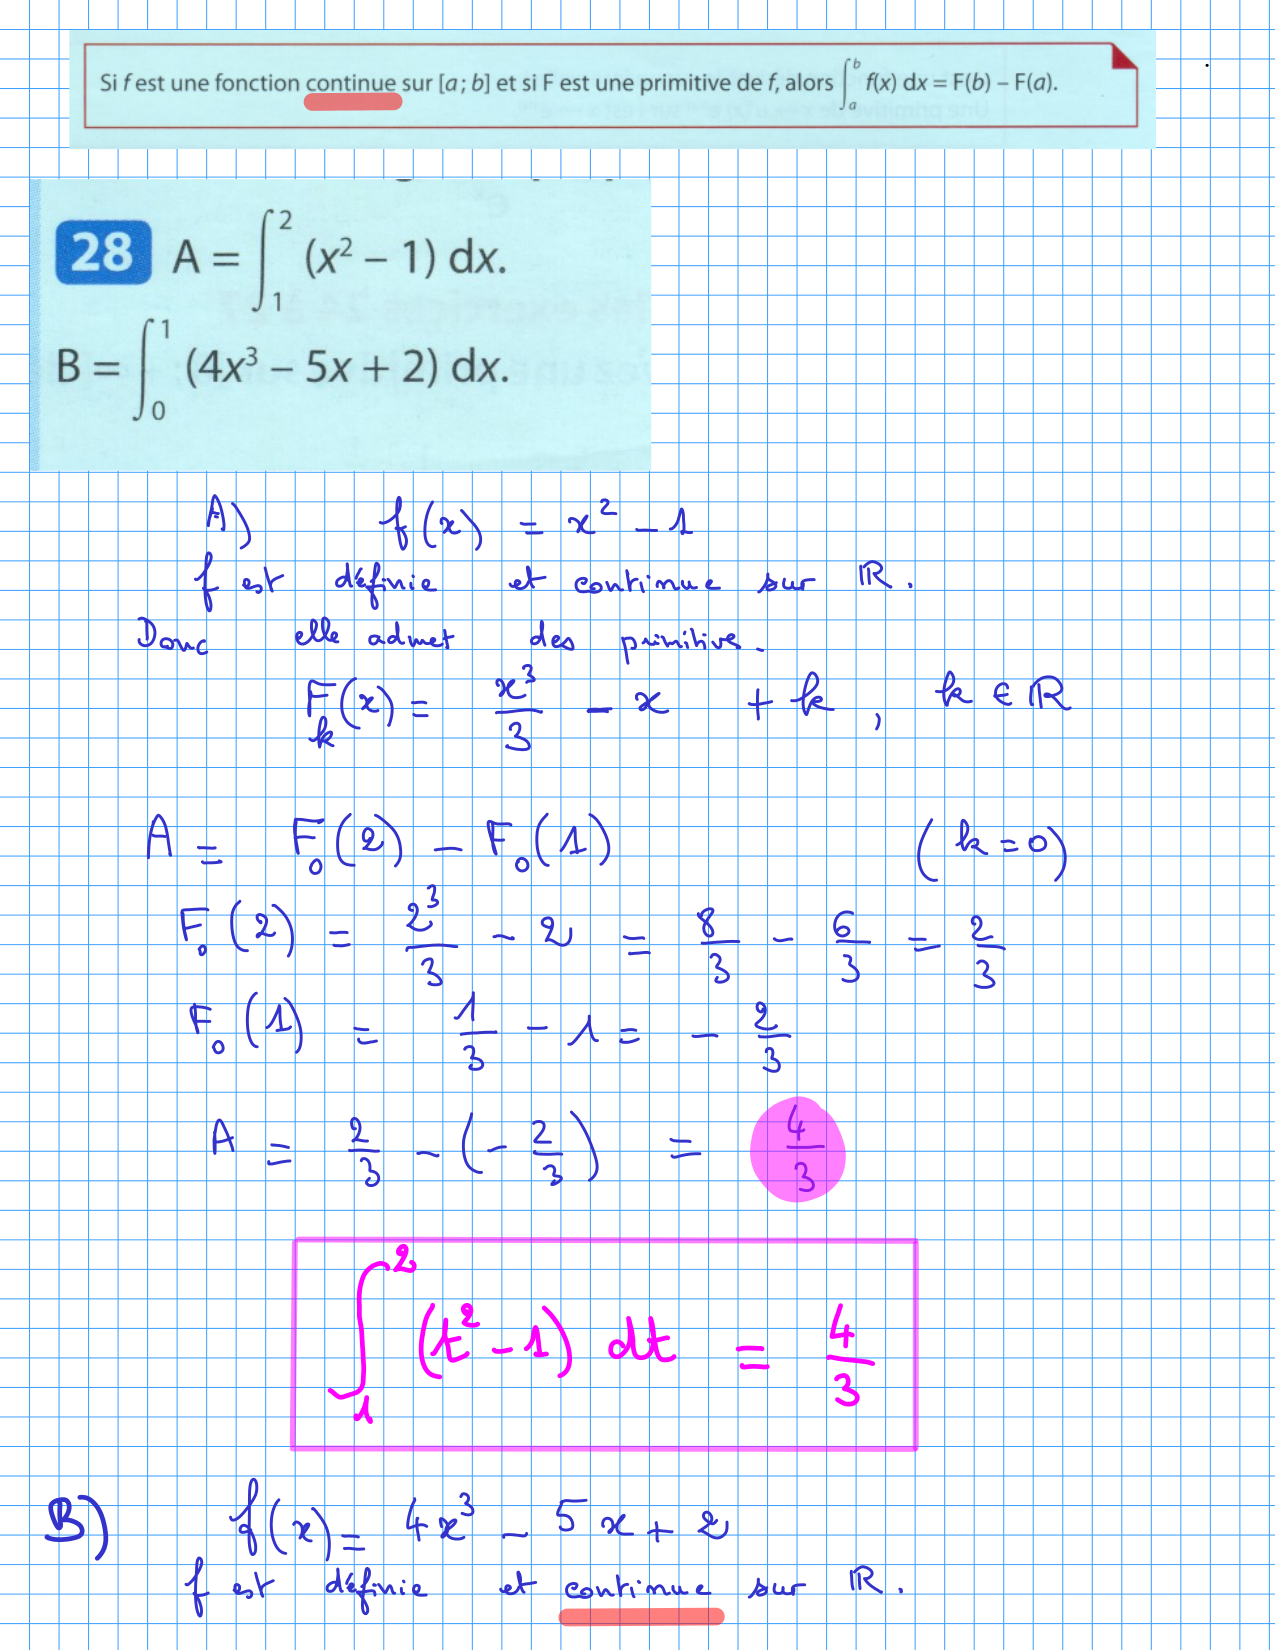 Si f est une fonction continue sur [a ; b] et si F est une primitive de f, alors ∫_a^b f(x) dx = F(b) – F(a).
28 A = ∫_1^2 (x² – 1) dx.
B = ∫_0^1 (4x³ – 5x + 2) dx.
A) f(x) = x² - 1
f est définie et continue sur ℝ.
Donc elle admet des primitives.
F_k(x) = x³/3 - x + k , k ∈ ℝ
A = F_0(2) - F_0(1) (k = 0)
F_0(2) = 2³/3 - 2 = 8/3 - 6/3 = 2/3
F_0(1) = 1/3 - 1 = - 2/3
A = 2/3 - (- 2/3) = 4/3
∫_1^2 (t² - 1) dt = 4/3
B) f(x) = 4x³ - 5x + 2
f est définie et continue sur ℝ.